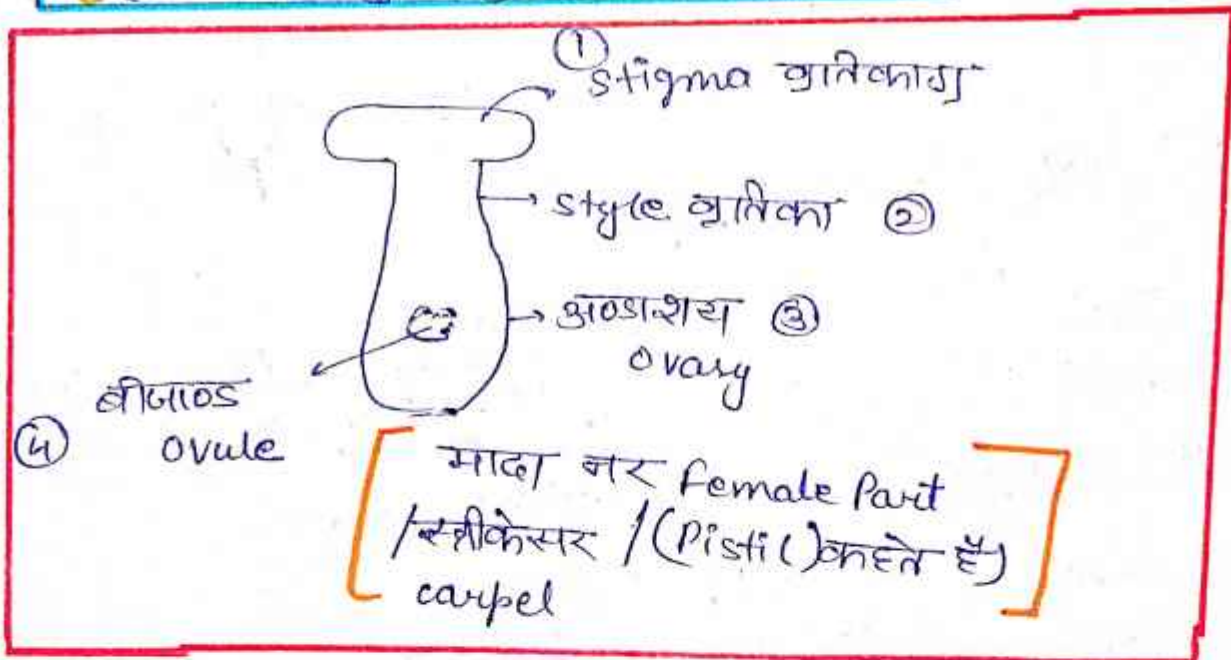 ①
Stigma वर्तिकाग्र
→ style वर्तिका ②
→ अण्डाशय ③
ovary
बीजाण्ड
④ ovule
मादा नर Female Part
/स्त्रीकेसर /(Pistil) कहते है)
carpel